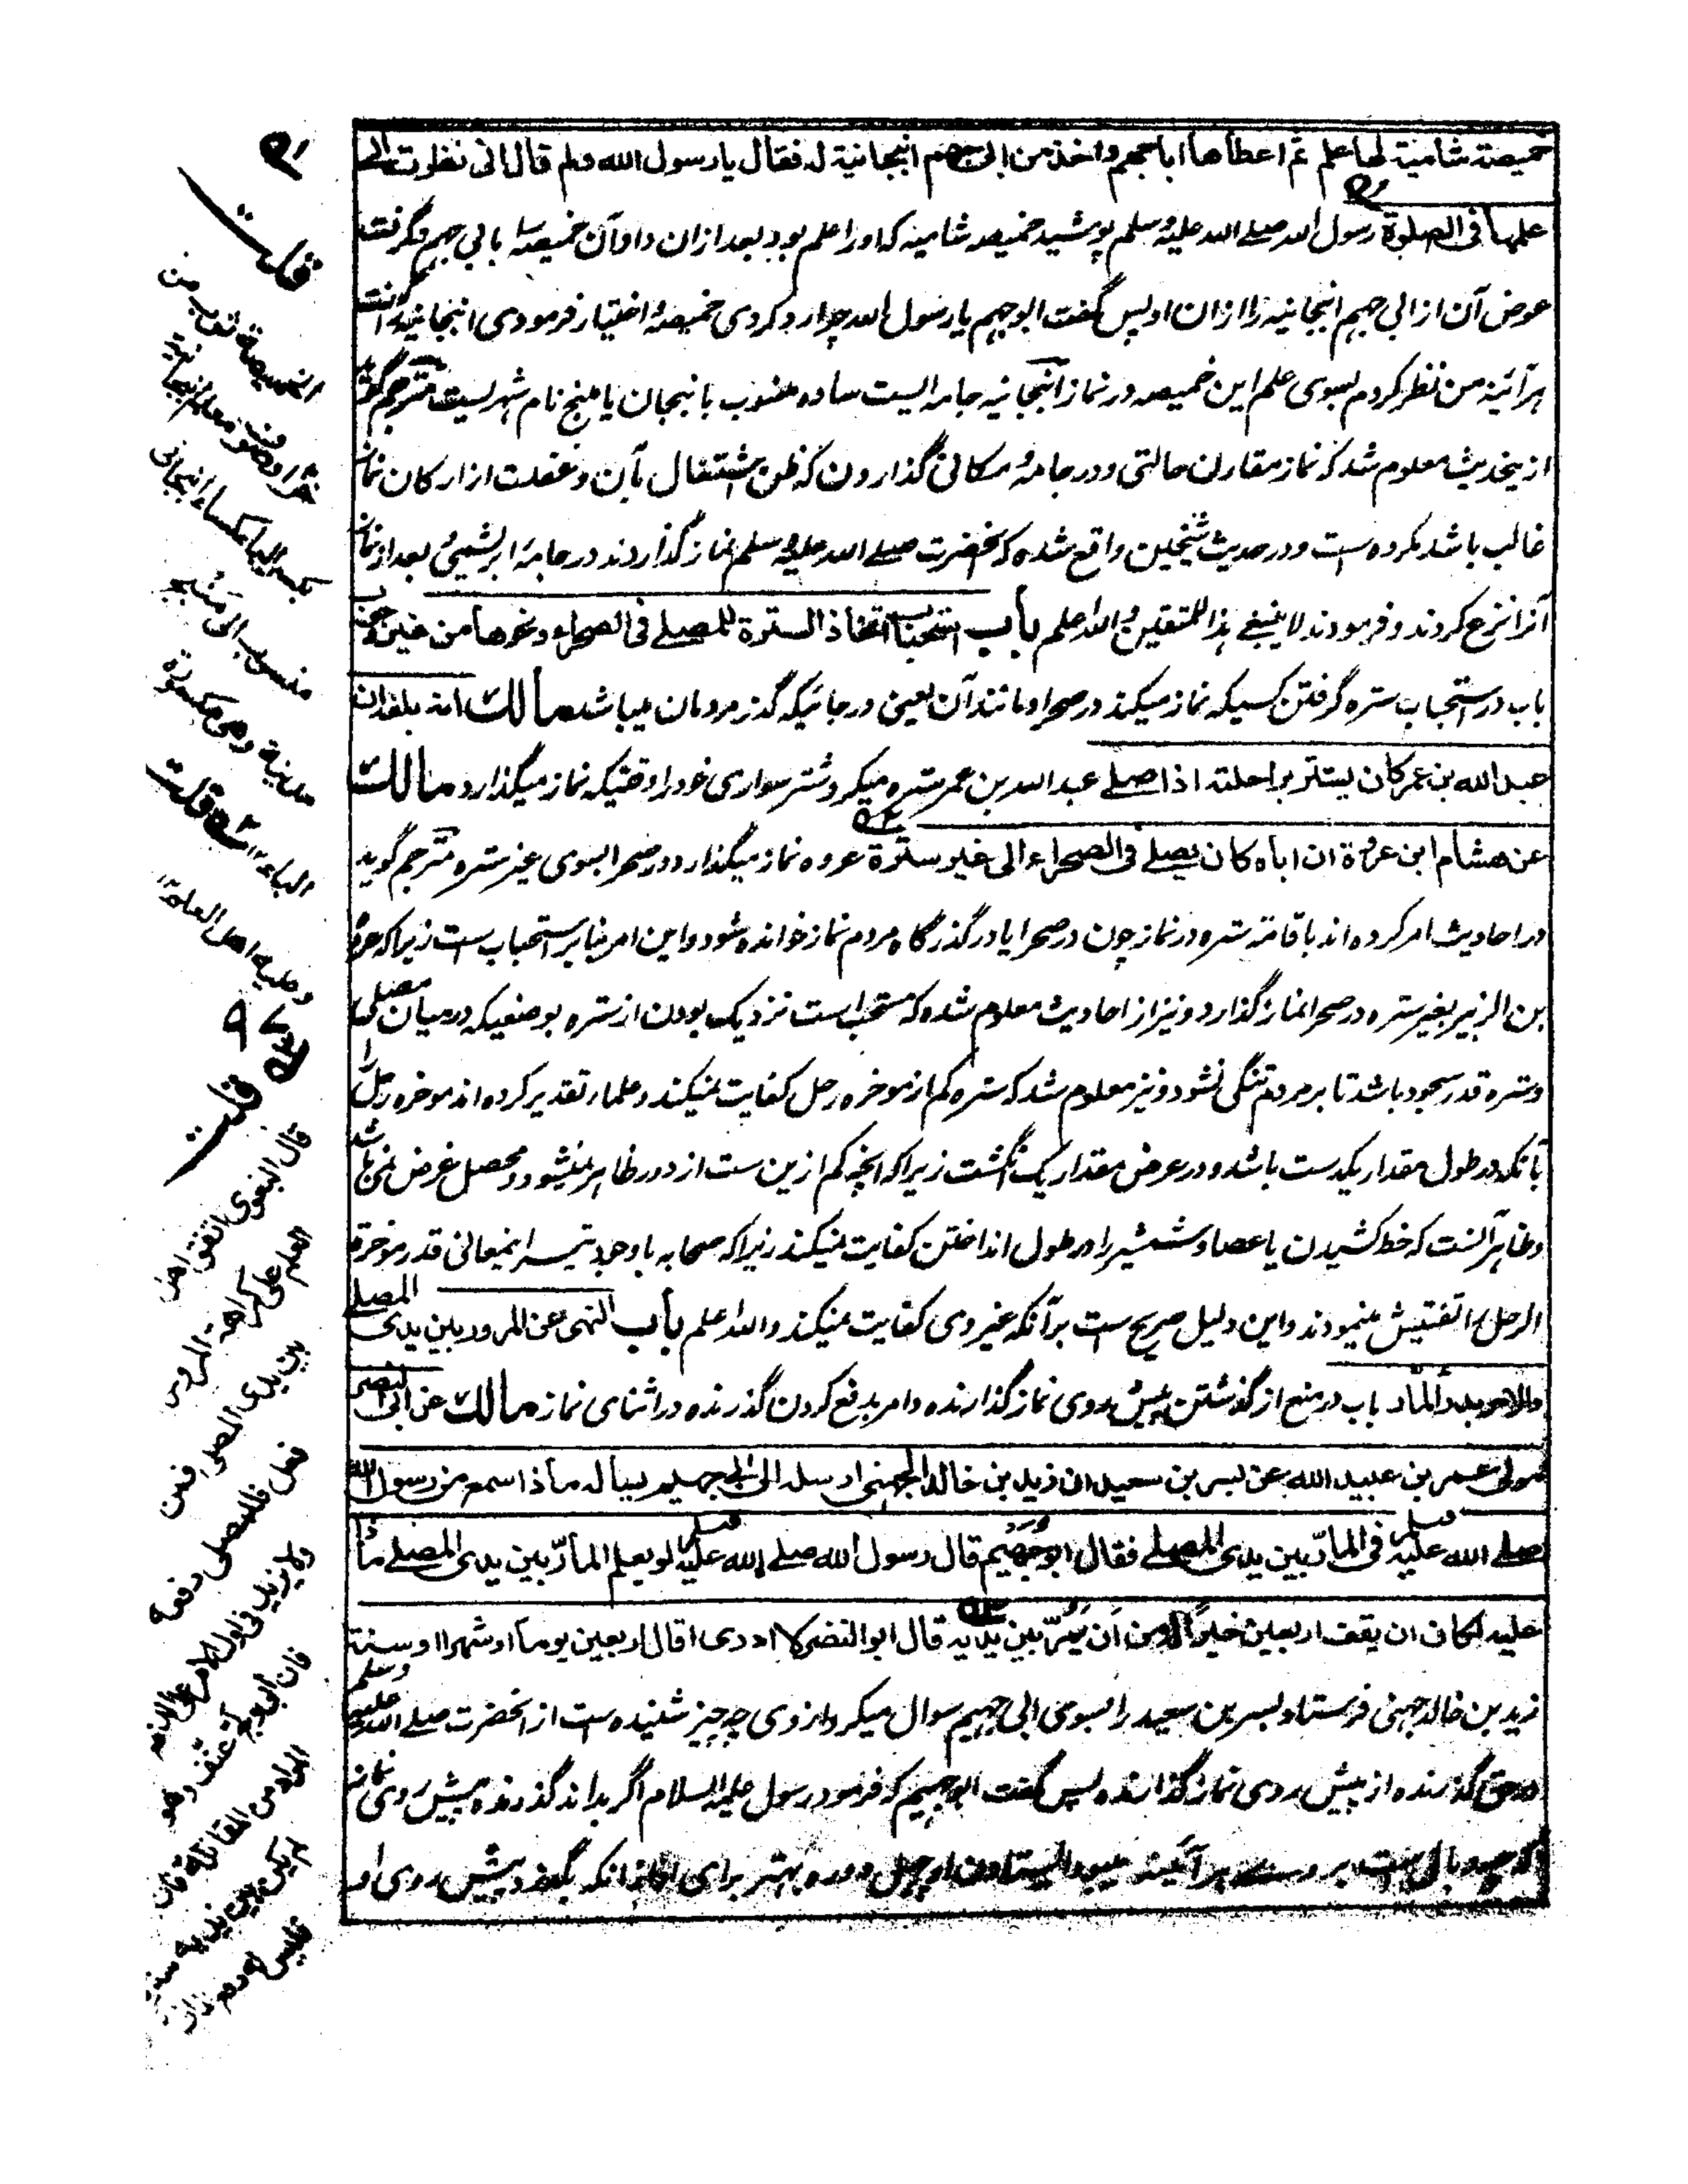 خميصة شامية لها علم ثم اعطاها اباجهم واخذ من ابى جهم انبجانية له فقال يا رسول الله ولم قال انى نظرت الى
علمها فى الصلوة رسول الله صلے الله عليه وسلم پوشيد خميصه شاميه كه اورا علم بود بعد ازان داد آن خميصه را بابي جهم وگرفت
عوض آن از ابي جهم انبجانيه را ازان او پس گفت ابو جهيم يا رسول الله چرا رد كردى خميصه و اختيار فرمودى انبجانيه گفت
هر آئينه من نظر كردم بسوى علم اين خميصه در نماز انبجانيه جامه ايست ساده منسوب بانبجان يا منبج نام شهريست مترجم گويد
ازينحديث معلوم شد كه نماز مقارن حالتى ودر جامه و مكانى گذاردن كه ظن اشتغال بآن وغفلت از اركان نماز
غالب باشد مكروه است ودر حديث شيخين واقع شده كه آنحضرت صلے الله عليه وسلم نماز گذاردند در جامۀ ابريشمى بعد از نماز
آنرا نزع كردند وفرمودند لا ينبغى هذا للمتقين والله اعلم باب استحباب اتخاذ السترة للمصلے فى الصحراء ونحوها من غير وجوب
باب در استحباب ستره گرفتن كسيكه نماز ميكند در صحرا ومانند آن يعنى در جائيكه گذر مردمان ميباشد مالك انه بلغه ان
عبد الله بن عمر كان يستتر براحلته اذا صلے عبد الله بن عمر ستره ميكرد شتر سوارى خود را وقتيكه نماز ميگذارد مالك
عن هشام ابن عروة ان اباه كان يصلے فى الصحراء الى غير سترة عروه نماز ميگذارد در صحرا بسوى غير ستره مترجم گويد
در احاديث امر كرده اند باقامت ستره در نماز چون در صحرا يا در گذرگاه مردم نماز خوانده شود واين امر بنا بر استحباب است زيرا كه عروه
بن الزبير بغير ستره در صحرا نماز گذارد ونيز از احاديث معلوم شده كه مستحب است نزديك بودن از ستره بوصفيكه درميان مصلى
وستره قدر سجود باشد تا بر مردم تنگى نشود ونيز معلوم شد كه ستره كم از موخره رحل كفايت نميكند وعلماء تقدير كرده اند موخره رحل را
بآنكه در طول مقدار يكدست باشد ودر عرض مقدار يك انگشت زيرا كه آنچه كم ازين ست از دور ظاهر نميشود ومحصل غرض نمى باشد
وظاهر آنست كه خط كشيدن يا عصا وشمشير را در طول انداختن كفايت نميكند زيرا كه صحابه با وجود تيسر اينمعانى قدر موخرة
الرحل را تفتيش مينمودند واين دليل صريح ست برآنكه غير وى كفايت نميكند والله اعلم باب النهى عن المرور بين يدى المصلے
والامر بدرء المار باب در منع از گذشتن پيش روى نماز گذارنده وامر بدفع كردن گذرنده در اثناى نماز مالك عن ابى النضر
مولى عمر بن عبيد الله عن بسر بن سعيد ان زيد بن خالد الجهنى ارسله الى ابى جهيم يسأله ماذا سمع من رسول الله
صلے الله عليه وسلم فى المارّ بين يدى المصلے فقال ابو جهيم قال رسول الله صلے الله عليه وسلم لو يعلم المارّ بين يدى المصلے ماذا
عليه لكان ان يقف اربعين خيرًا له من أن يمرّ بين يديه قال ابو النضر لا ادرى اقال اربعين يوما او شهرا او سنة
زيد بن خالد جهنى فرستاد بسر بن سعيد را بسوى ابى جهيم سوال ميكرد از وى چه چيز شنيده ست از آنحضرت صلے الله عليه وسلم
در حق گذرنده از پيش روى نماز گذارنده پس گفت ابو جهيم كه فرمود رسول عليه السلام اگر بداند گذرنده پيش روى نماز
كه چه وبال است بر وے هر آئينه ميبود ايستادن او چهل دوره بهتر براى او از آنكه بگذرد پيش روى او
قلت
الخميصة ثوب من
خز او صوف معلم
بكسر الباء كساء انبجانى
منسوب الى منبج
مدينة وهى مكسورة
الباء قلت
وعليه اهل العلم
قلت
قال البغوى اتفق اهل
العلم على كراهة المرور
بين يدى المصلى فمن
فعل فللمصلى دفعه
ولا يزيد فى اول الامر على الدفع
فان ابى عنف وهو
المراد من المقاتلة فان
لم يكن بين يديه سترة
فليس له دفع